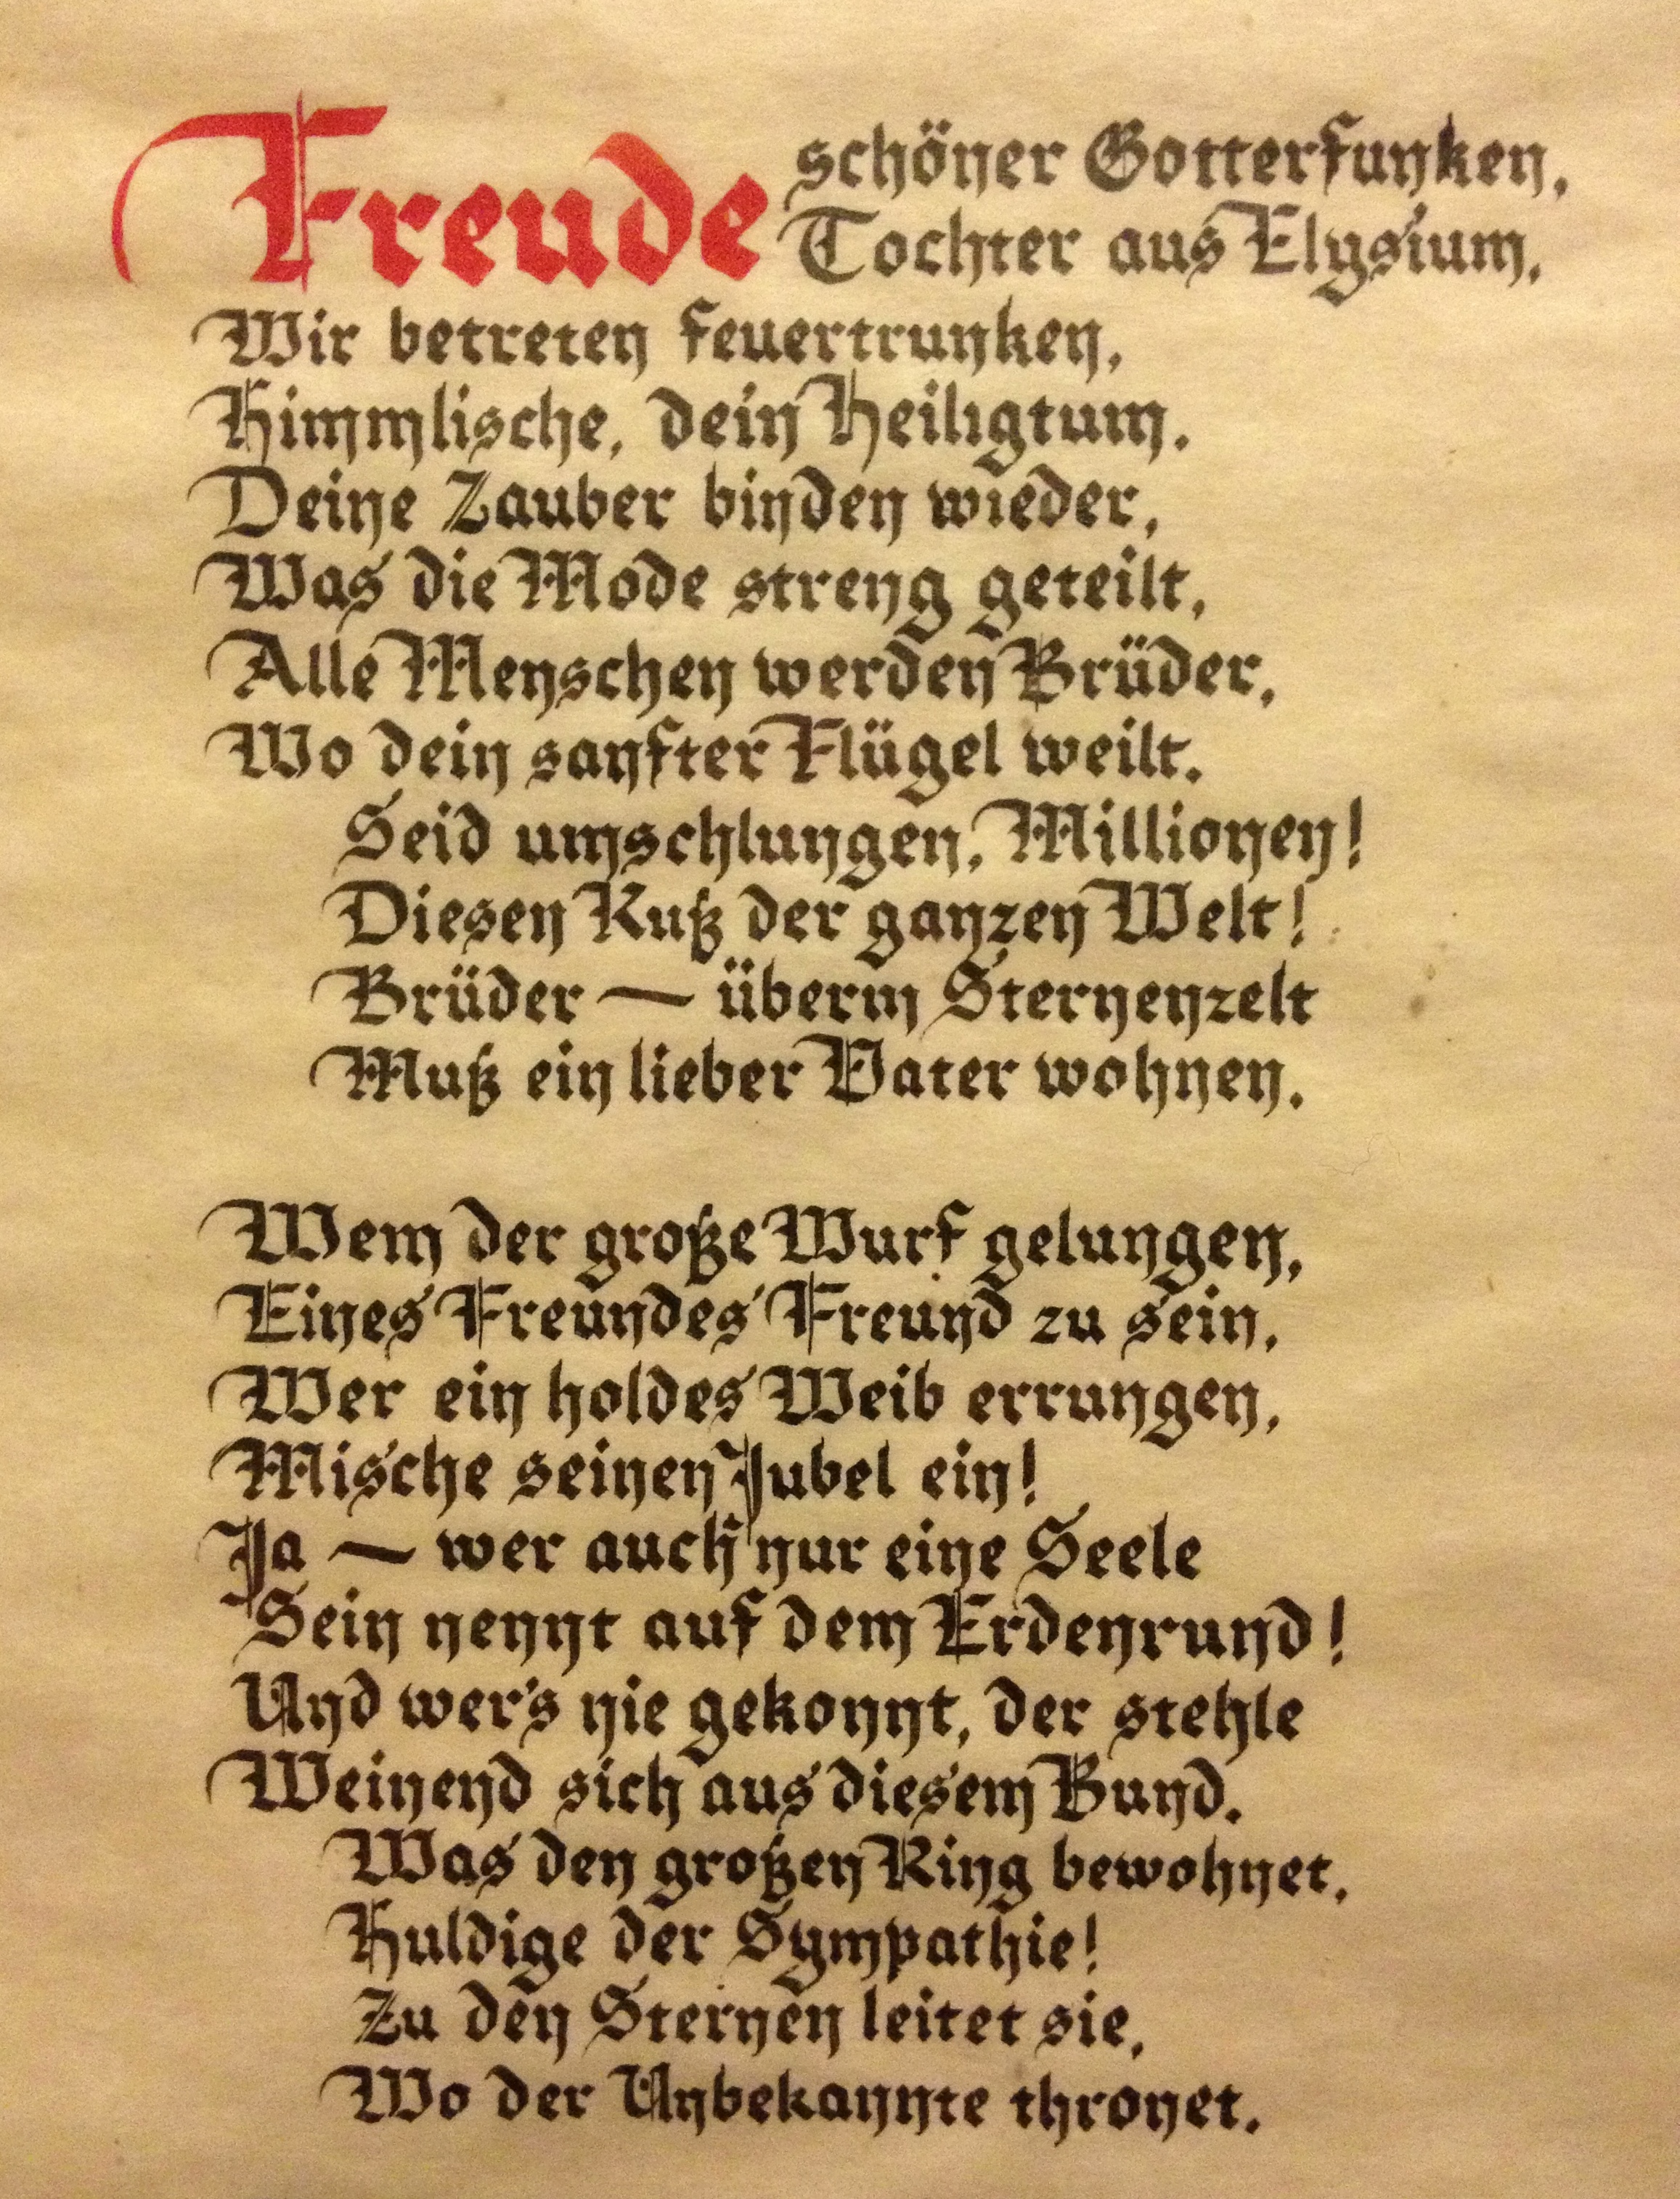 Freude schöner Gotterfunken,
Tochter aus Elysium,
Wir betreten feuertrunken,
Himmlische, dein Heiligtum.
Deine Zauber binden wieder,
Was die Mode streng geteilt,
Alle Menschen werden Brüder,
Wo dein sanfter Flügel weilt.
Seid umschlungen, Millionen!
Diesen Kuß der ganzen Welt!
Brüder — überm Sternenzelt
Muß ein lieber Vater wohnen.
Wem der große Wurf gelungen,
Eines Freundes Freund zu sein,
Wer ein holdes Weib errungen,
Mische seinen Jubel ein!
Ja — wer auch nur eine Seele
Sein nennt auf dem Erdenrund!
Und wer's nie gekonnt, der stehle
Weinend sich aus diesem Bund.
Was den großen Ring bewohnet,
Huldige der Sympathie!
Zu den Sternen leitet sie,
Wo der Unbekannte thronet.